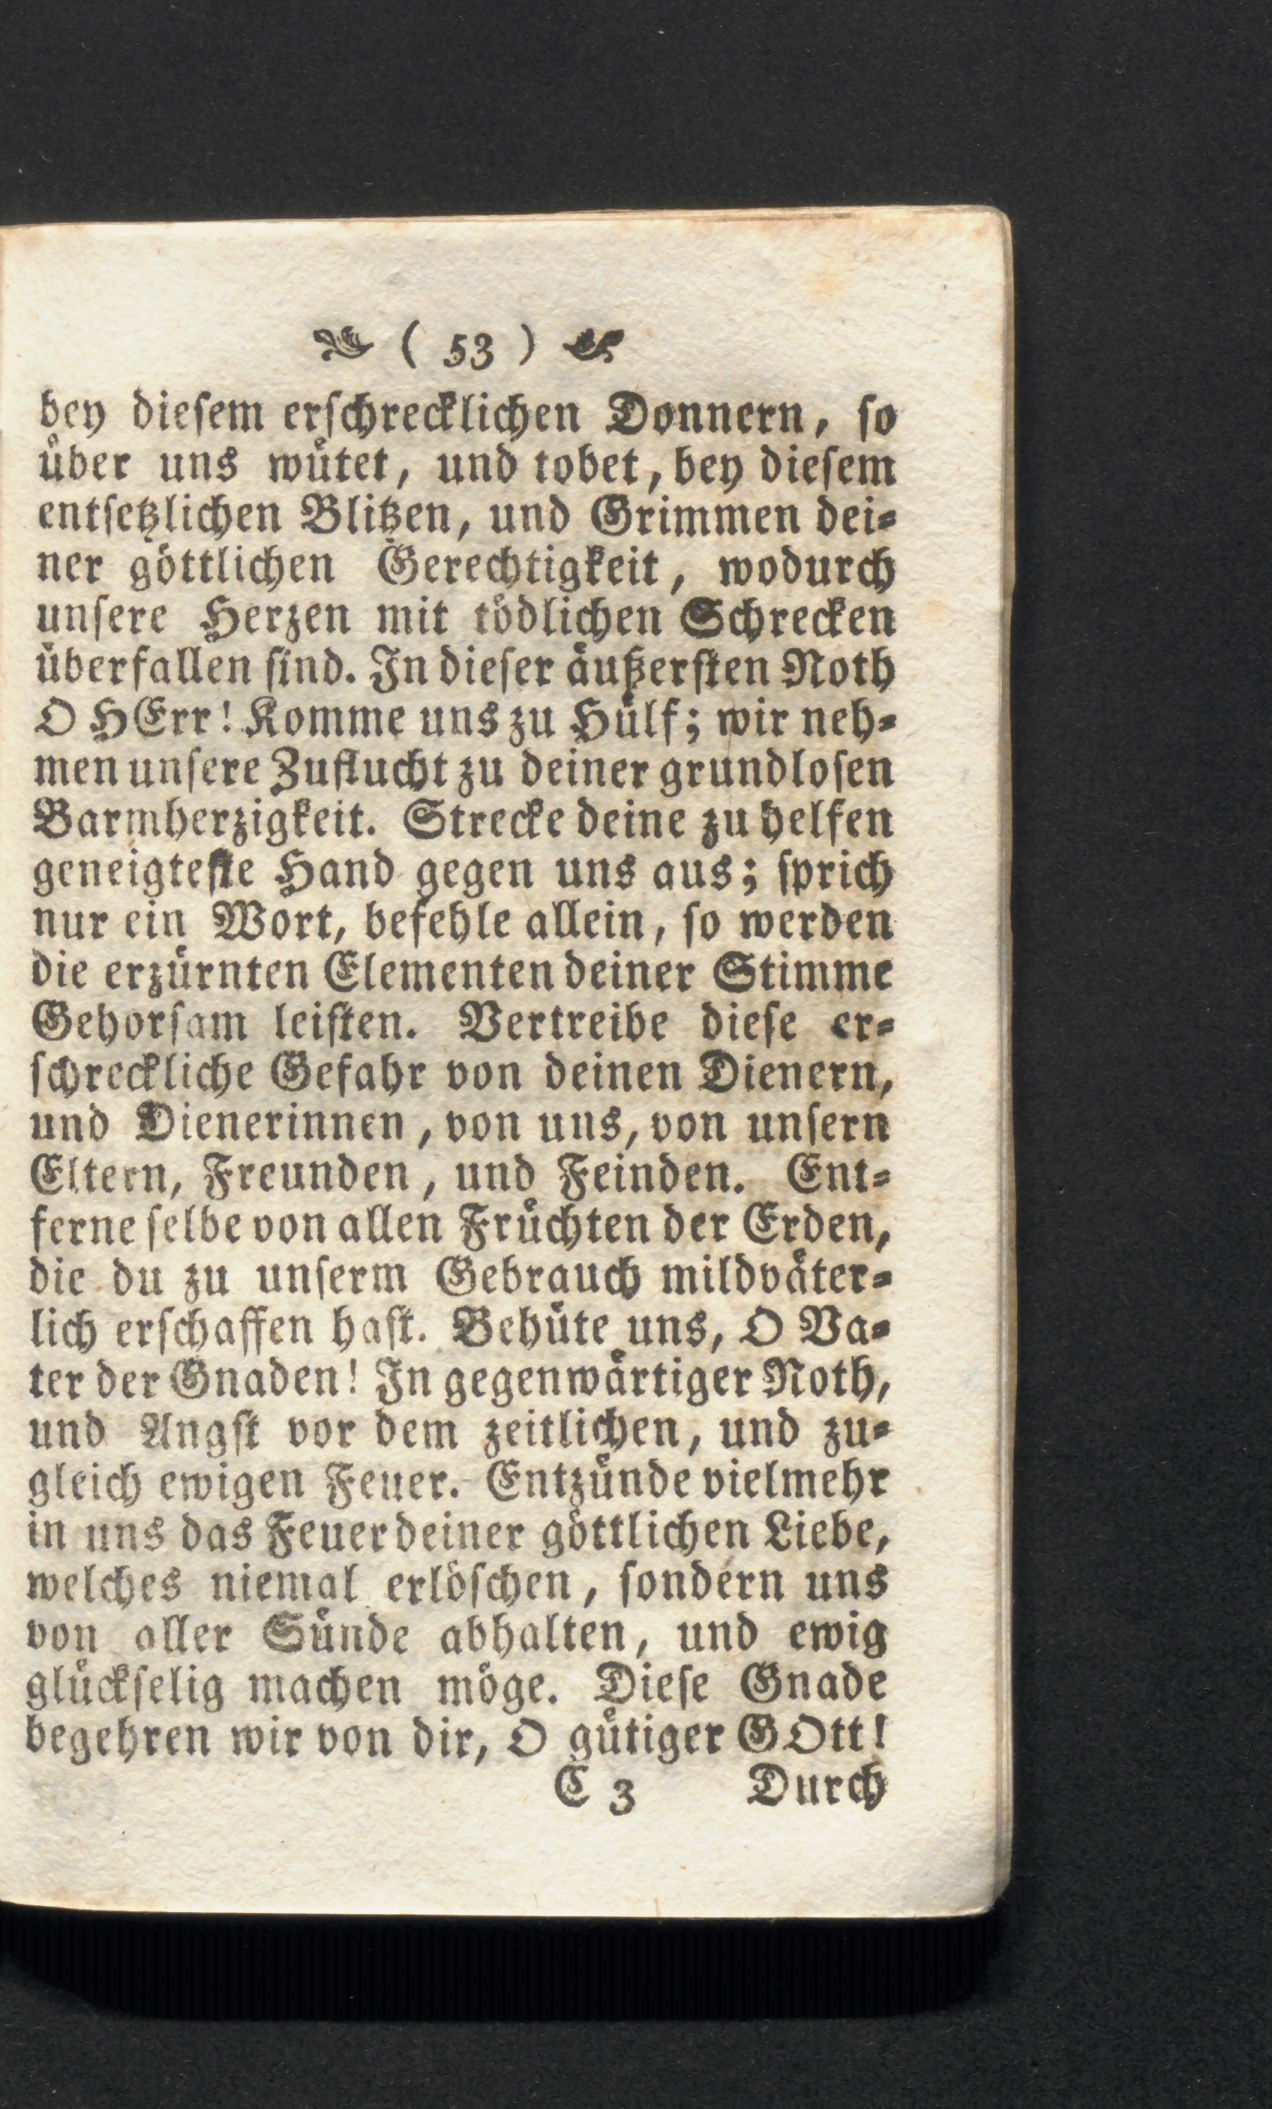 ( 53 )
bey dieſem erſchrecklichen Donnern, ſo
uͤber uns wuͤtet, und tobet, bey dieſem
entſetzlichen Blitzen, und Grimmen dei⸗
ner goͤttlichen Gerechtigkeit, wodurch
unſere Herzen mit toͤdlichen Schrecken
uͤberfallen ſind. In dieſer aͤußerſten Noth
O HErr! Komme uns zu Huͤlf; wir neh⸗
men unſere Zuflucht zu deiner grundloſen
Barmherzigkeit. Strecke deine zu helfen
geneigteſte Hand gegen uns aus; ſprich
nur ein Wort, befehle allein, ſo werden
die erzuͤrnten Elementen deiner Stimme
Gehorſam leiſten. Vertreibe dieſe er⸗
ſchreckliche Gefahr von deinen Dienern,
und Dienerinnen, von uns, von unſern
Eltern, Freunden, und Feinden. Ent⸗
ferne ſelbe von allen Fruͤchten der Erden,
die du zu unſerm Gebrauch mildvaͤter⸗
lich erſchaffen haſt. Behuͤte uns, O Va⸗
ter der Gnaden! In gegenwaͤrtiger Noth,
und Angſt vor dem zeitlichen, und zu⸗
gleich ewigen Feuer. Entzuͤnde vielmehr
in uns das Feuer deiner goͤttlichen Liebe,
welches niemal erloͤſchen, ſondern uns
von aller Suͤnde abhalten, und ewig
gluͤckſelig machen moͤge. Dieſe Gnade
begehren wir von dir, O guͤtiger GOtt!
C 3 Durch